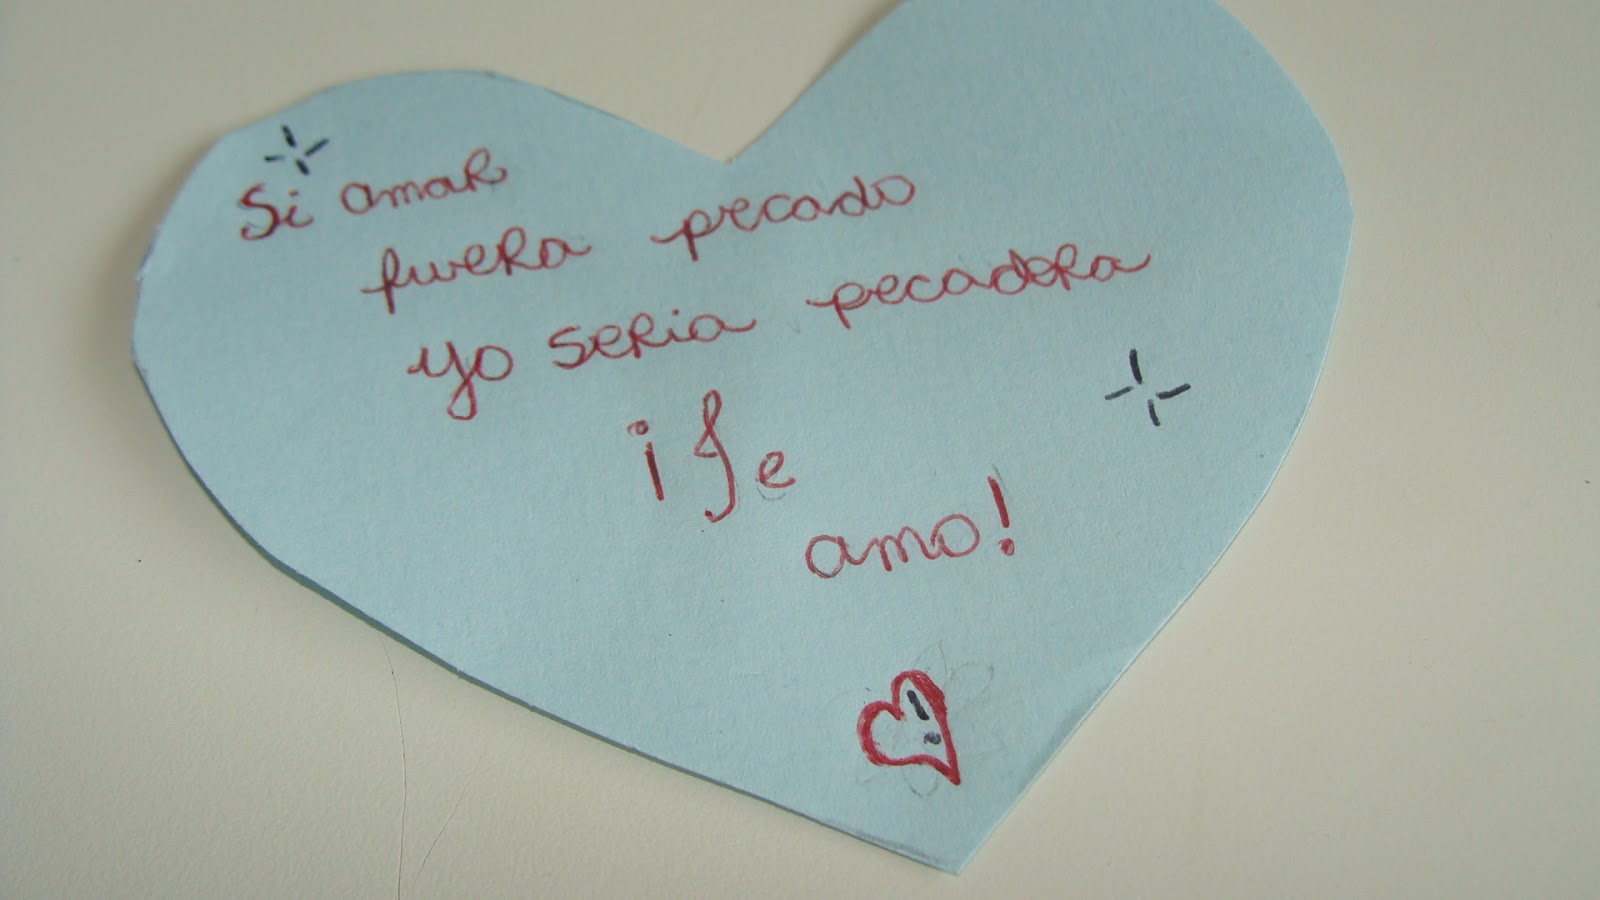 Si amar
fuera pecado
yo seria pecadera
¡Te
amo!
!